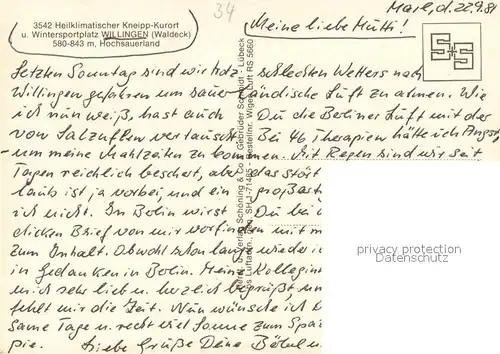 3542 Heilklimatischer Kneipp-Kurort
u. Wintersportplatz WILLINGEN (Waldeck)
580-843 m, Hochsauerland
34
Marl, d. 22.9.81
Meine liebe Mutti!
Letzten Sonntag sind wir trotz schlechten Wetters nach
Willingen gefahren um sauerländische Luft zu atmen. Wie
ich nun weiß, hast auch Du die Berliner Luft mit der
von Salzuflen vertauscht. Bei 46 Therapien hätte ich Angst,
um meine Mahlzeiten zu kommen. Mit Regen sind wir seit
Tagen reichlich beschert, aber das stört
laub ist ja vorbei, und ein großart
ich nicht. In Berlin wirst Du bei
dicken Brief von mir vorfinden mit
zum Inhalt. Obwohl schon lange wieder
in Gedanken in Berlin. Meine Kollegin
mich sehr lieb u. herzlich begrüßt, un
fehlt mir die Zeit. Nun wünsche ich
same Tage u. recht viel Sonne zum Spa
pie. Liebe Grüße Deine Bärbel u.
Druck u. Verlag Schöning & Co + Gebrüder Schmidt - Lübeck
Bestellnr. Wigen Luft HS 5660
S+S
copyright protection
Sammlerstuecke.de